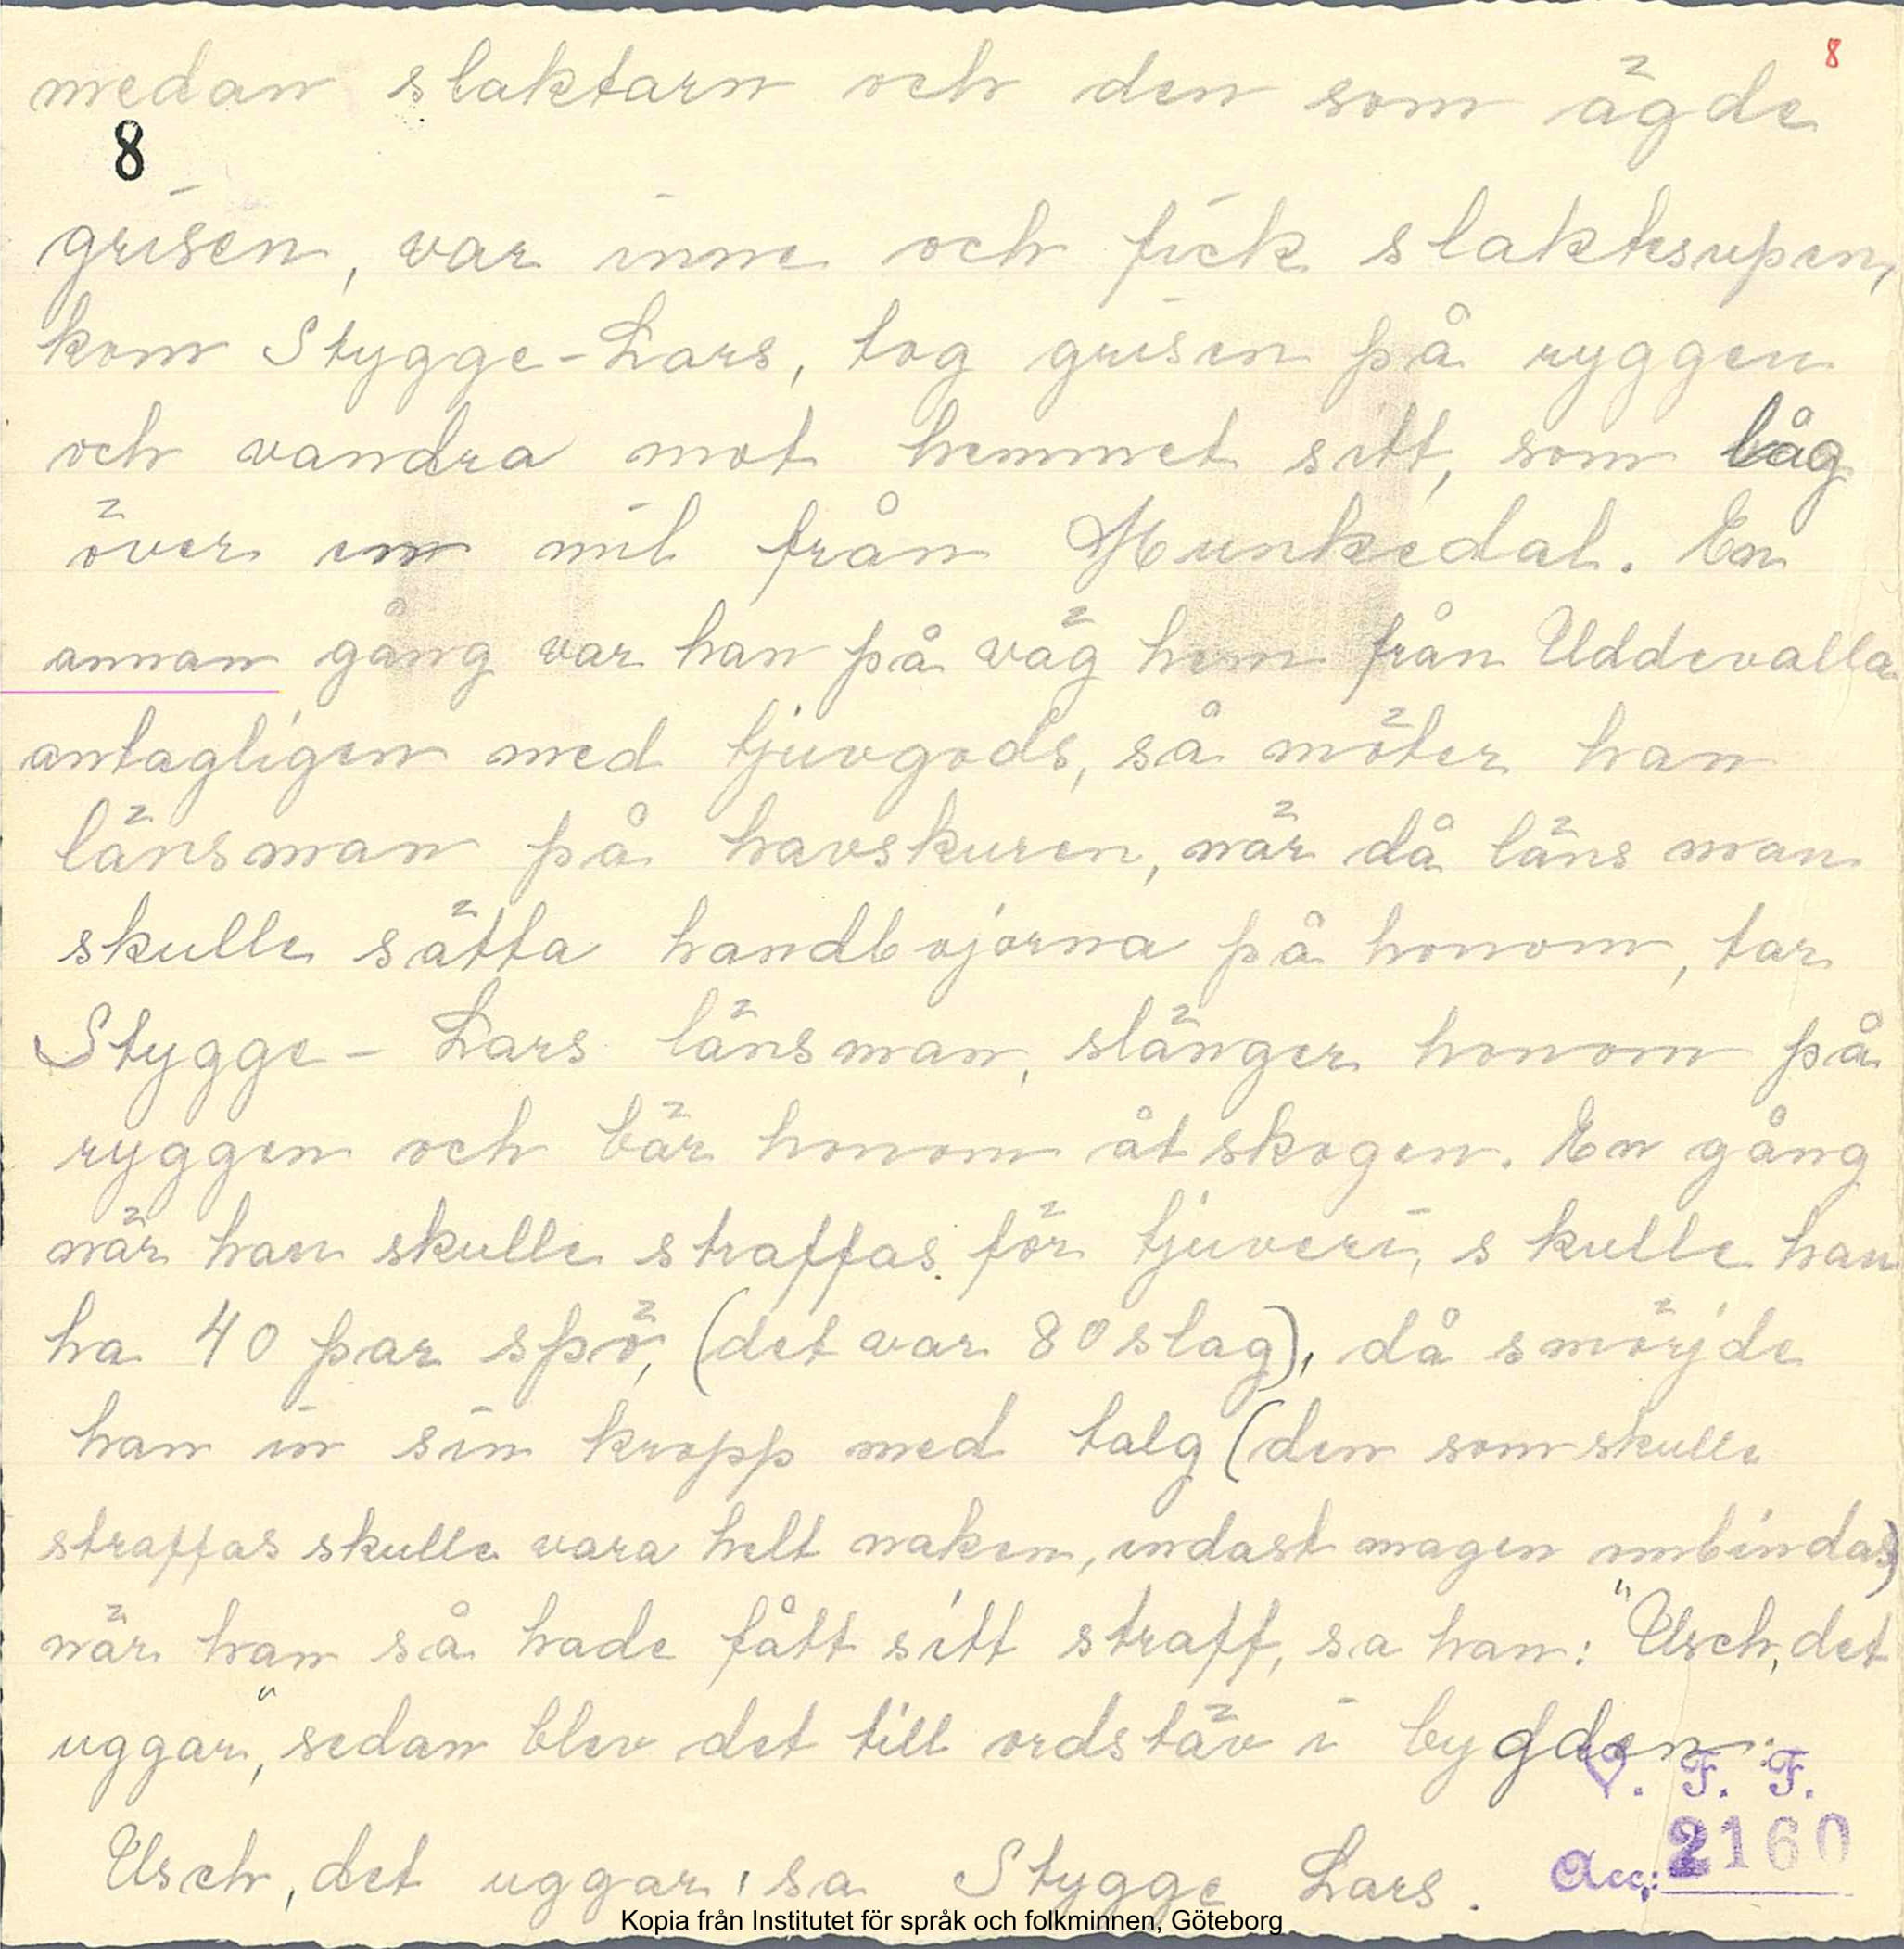 8
medan slaktarn och den som ägde
8
grisen, var inne och fick slaktsupen,
kom Stygge-Lars, tog grisen på ryggen
och vandra mot hemmet sitt, som låg
över en mil från Munkedal. En
annan gång var han på väg hem från Uddevalla
antagligen med tjuvgods, så möter han
länsman på havskuren, när då länsman
skulle sätta handbojorna på honom, tar
Stygge-Lars länsman, slänger honom på
ryggen och bär honom åt skogen. En gång
när han skulle straffas för tjuveri, skulle han
ha 40 par spö, (det var 80 slag), då smörjde
han in sin kropp med talg (den som skulle
straffas skulle vara helt naken, endast magen ombindas)
när han så hade fått sitt straff, sa han: "Usch, det
uggar", sedan blev det till ordstäv i bygden:
V. F. F.
Usch, det uggar, sa Stygge Lars.
Acc: 2160
Kopia från Institutet för språk och folkminnen, Göteborg